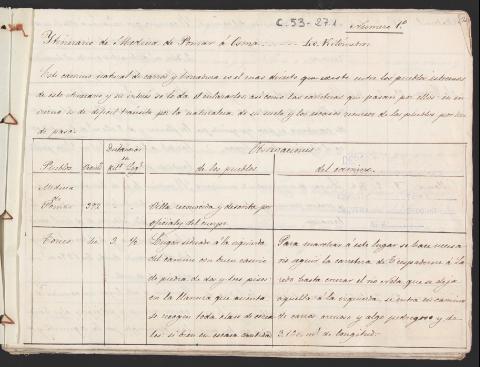 C. 53-27.1
Número 1º
Itinerario de Medina de Pomar á Osma Ls. Kilometros
Este camino natural de carros y herradura es el mas directo que existe entre los pueblos estremos
de este itinerario y su interes se lo da el enlazarlos, así como las carreteras que pasan por ellos: en in-
vierno es de dificil tránsito por la naturaleza de su suelo y los escasos recursos de los pueblos por don-
de pasa.
Distancias en
Observaciones
Pueblos Kilº Legº de los pueblos del camino
Medina de Pomar 392 - - Villa reconocida y descrita por
oficiales del cuerpo.
Torres 40 3 ½ Lugar situado á la izquierda Para marchar á este lugar se hace necesa-
del camino con buen caserio rio seguir la carretera de Trespaderne á la
de piedra de dos y tres pisos: redo hasta cruzar el rio Nela, que se deja
en la llanura que asienta aquella á la izquierda, y entra en camino
se recogen toda clase de cerea- de carros arenoso y algo pedregoso y de
les si bien en escasa cantidad. 3.100 mº de longitud.